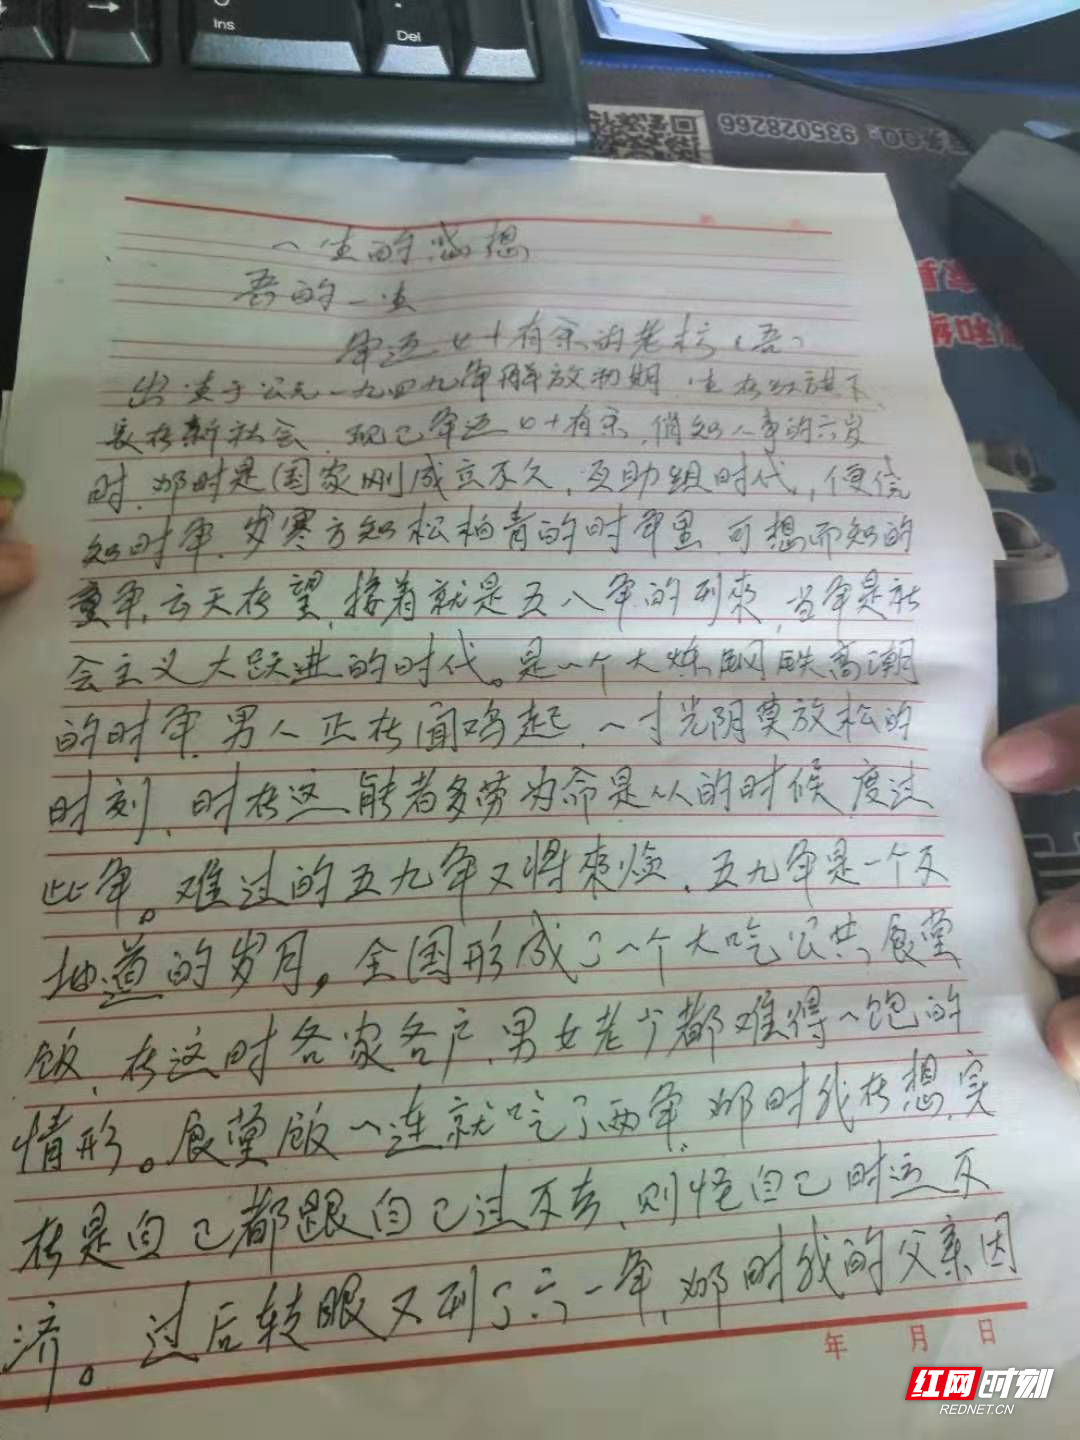 Ins
Del
务QQ:935028266
一生的感想
吾的一生
年近七十有余的老朽(吾)
出生于公元一九四九年解放初期，生在红旗下、
长在新社会，现已年近七十有余，俏知人事的六岁
时，那时是国家刚成立不久，互助组时代，便
知时年，岁寒方知松柏青的时年里，可想而知的
童年，云天在望，接着就是五八年的到来，当年是社
会主义大跃进的时代。是一个大炼钢铁高潮
的时年，男人正在闻鸡起，一寸光阴莫放松的
时刻，时在这能者多劳为命是从的时候，度过
此年。难过的五九年又将来临，五九年是一个不
地道的岁月，全国形成了一个大吃公共食堂
饭，在这时各家各户，男女老少都难得一饱的
情形。食堂饭一连就吃了两年，那时我在想，实
在是自己都跟自己过不去，则怪自己时运不
济。过后转眼又到了六一年，那时我的父亲因
年 月 日
红网时刻
REDNET.CN